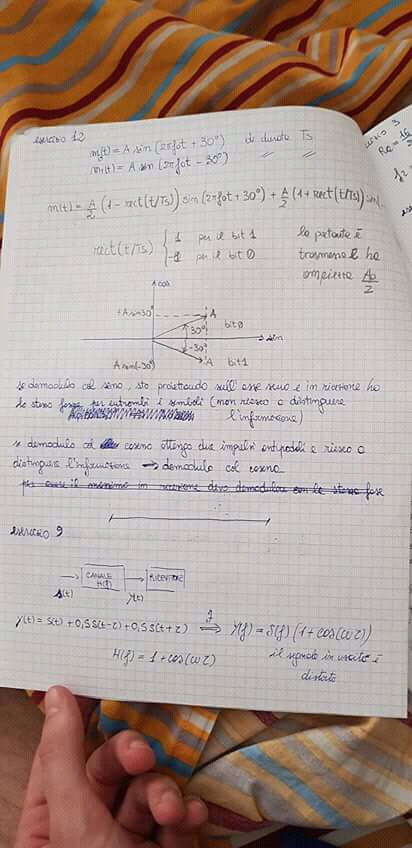 esercizio 12
m₀(t) = A sin (2πf₀t + 30°) di durata Ts
m₁(t) = A sin (2πf₀t − 30°) " "
m(t) = A/2 (1 − rect(t/Ts)) sin(2πf₀t + 30°) + A/2 (1 + rect(t/Ts)) sin(
rect(t/Ts) { 1 per il bit 1
−1 per il bit 0
la portante è
trasmessa e ha
ampiezza A₀/2
cos
+A sin 30° A
30° bit 0
sin
−30°
A sin(−30°) A bit 1
se demodulo col seno, sto proiettando sull'asse seno e in ricezione ho
lo stesso per entrambi i simboli (non riesco a distinguere
l'informazione)
se demodulo col coseno ottengo due impulsi antipodali e riesco a
distinguere l'informazione → demodulo col coseno
per avere il massimo in ricezione devo demodulare con la stessa fase
esercizio 9
CANALE H(f) RICEVITORE
s(t) y(t)
y(t) = s(t) + 0,5 s(t−τ) + 0,5 s(t+τ) ⇒ Y(f) = S(f) (1 + cos(ωτ))
H(f) = 1 + cos(ωτ) il segnale in uscita è
distorto